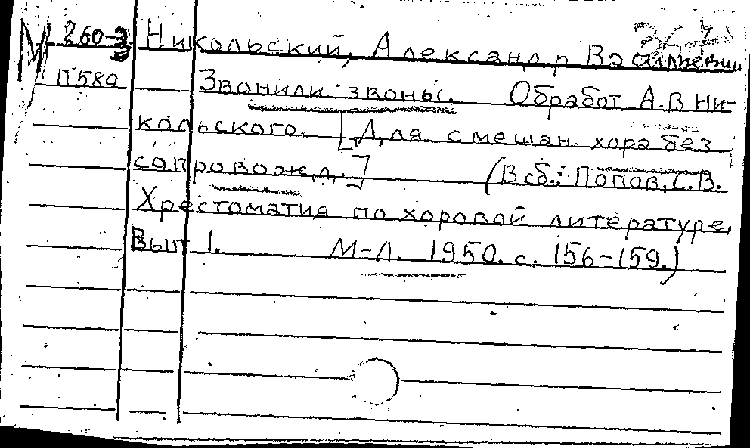 М 260-3 Никольский, Александр Васильевич
П580 Звонили звоны. Обработ А.В Ни-
кольского. [Для смешан. хора без
сопровожд.] (В сб.: Попов, С.В.
Хрестоматия по хоровой литературе.
Вып 1. М-Л. 1950. с. 156-159.)